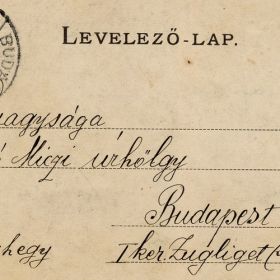 LEVELEZŐ-LAP.
BUD
nagysága
Miczi úrhölgy
Budapest
hegy I ker. Zugliget (